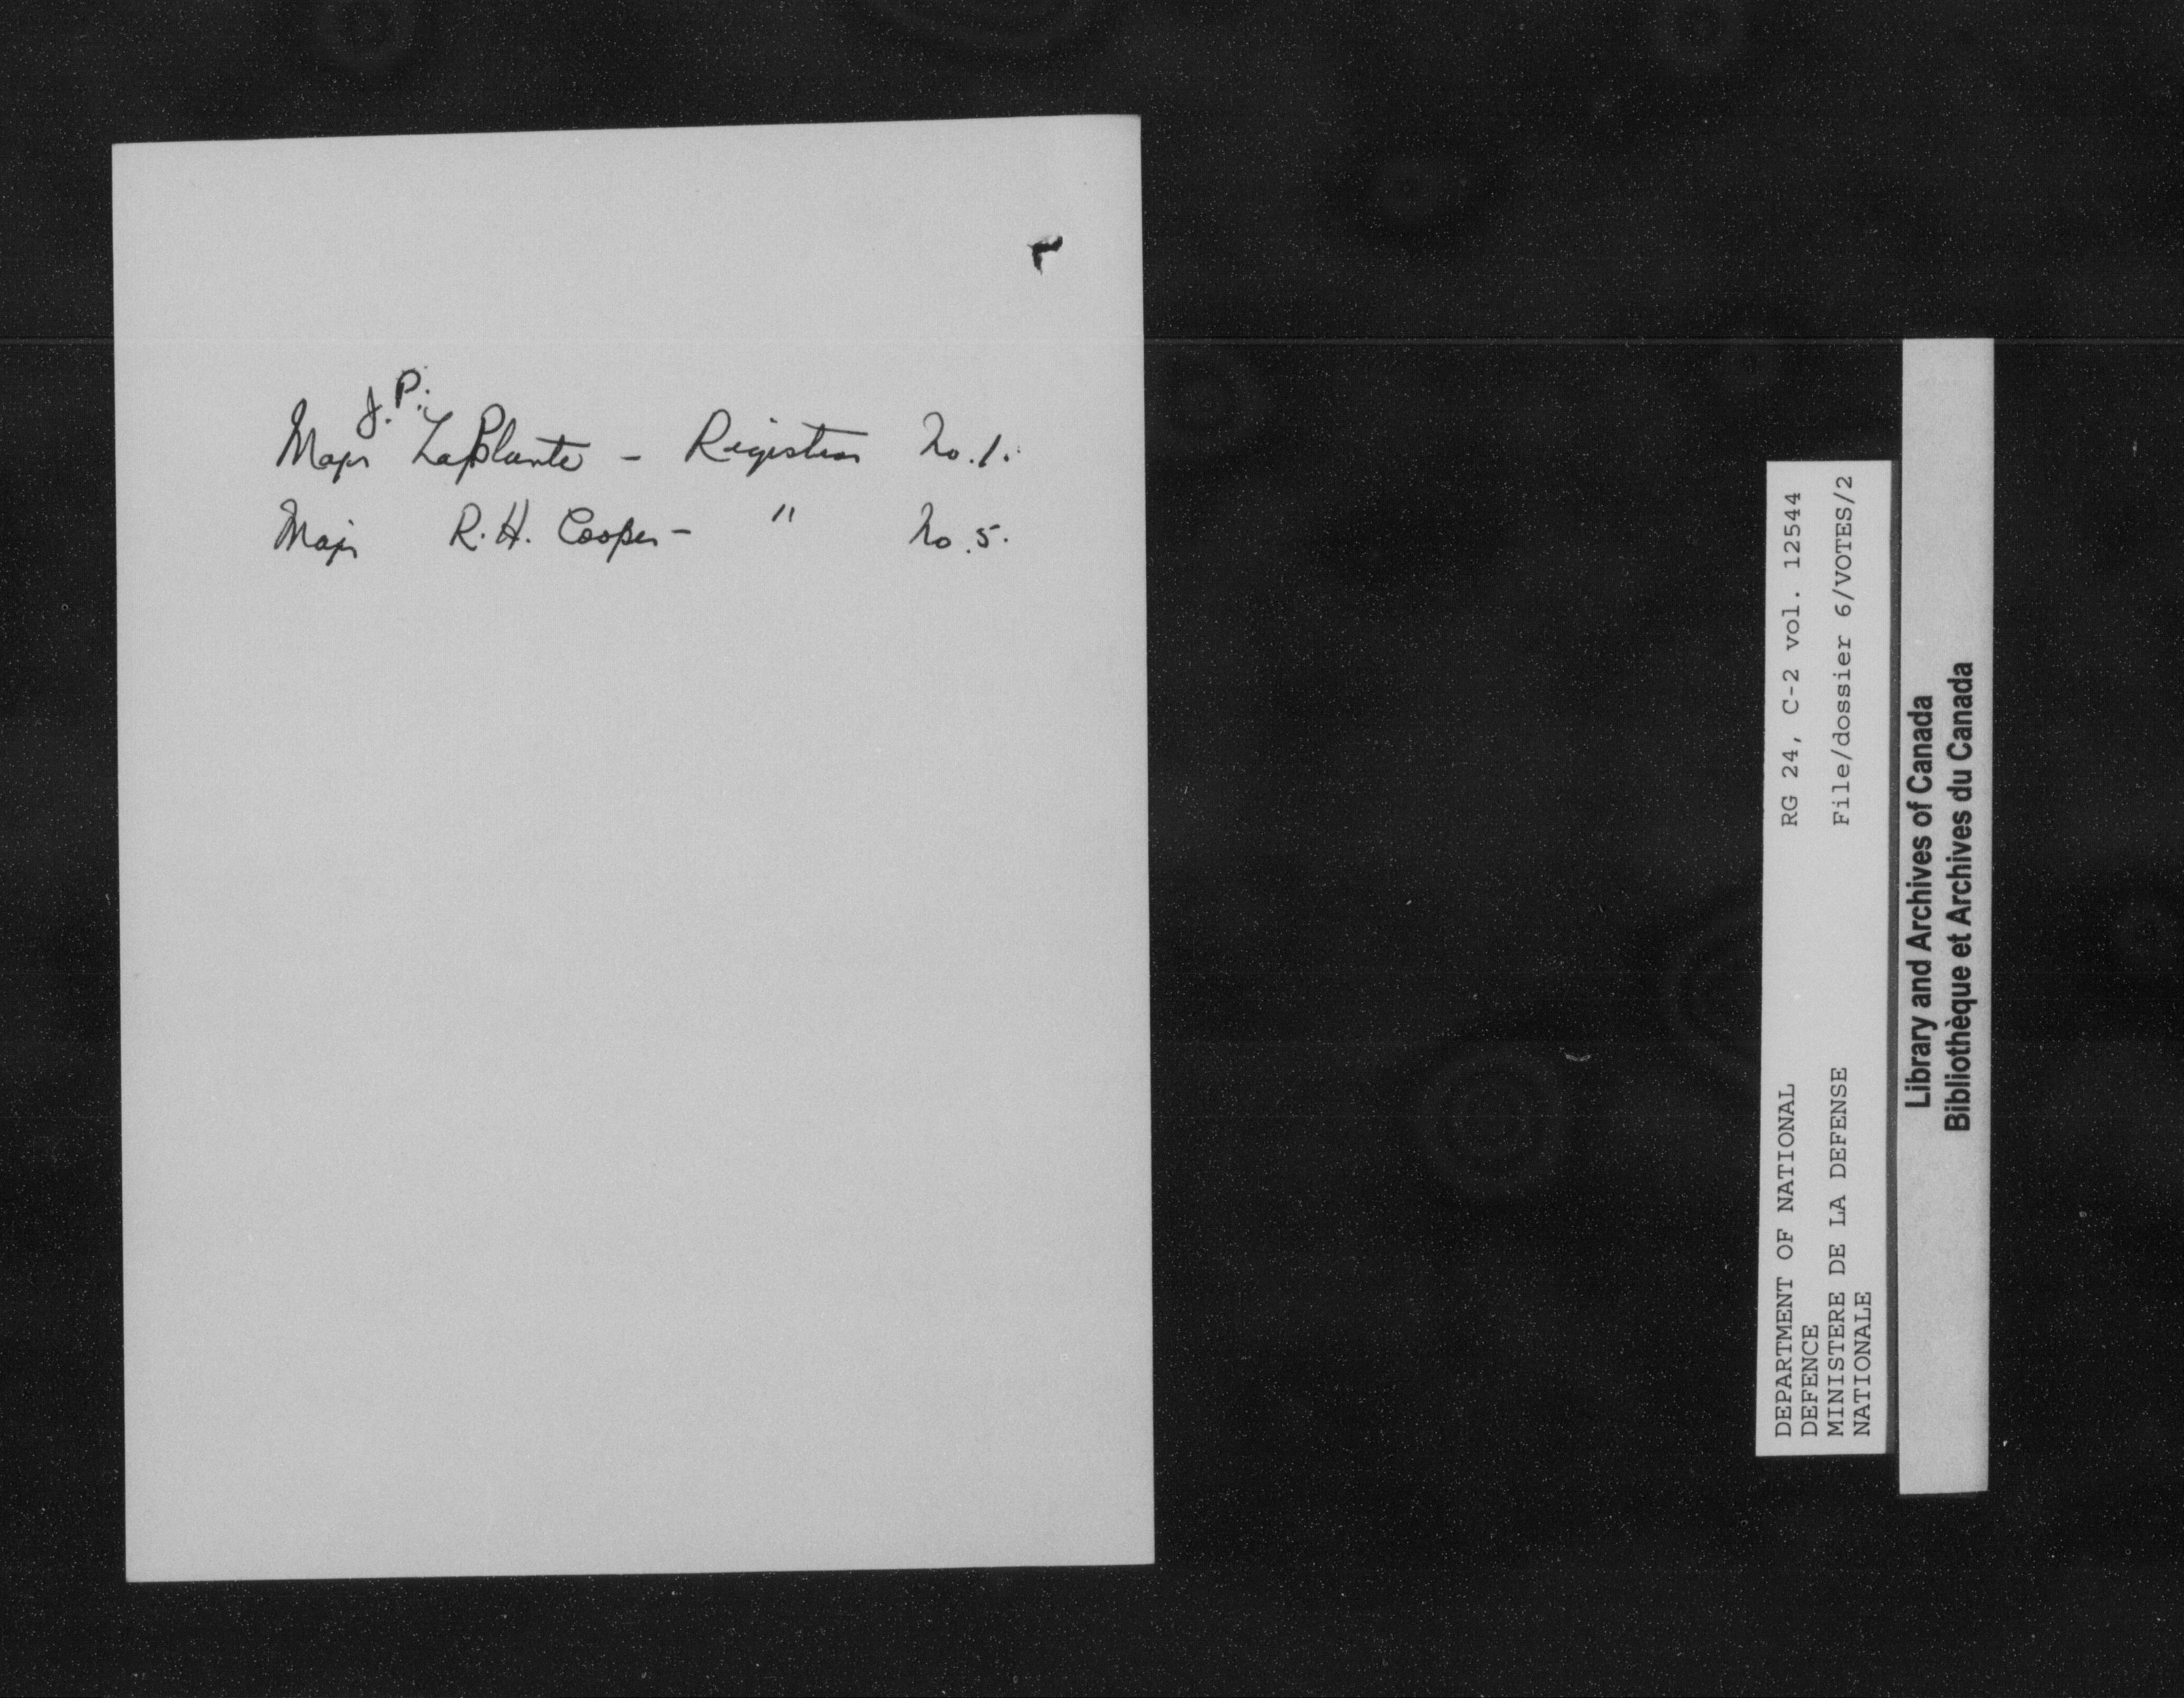 Major J.P. LaPlante - Registrar No. 1.
Major R.H. Cooper - " No. 5.
RG 24, C-2 vol. 12544
File/dossier 6/VOTES/2
DEPARTMENT OF NATIONAL
DEFENCE
MINISTERE DE LA DEFENSE
NATIONALE
Library and Archives of Canada
Bibliothèque et Archives du Canada